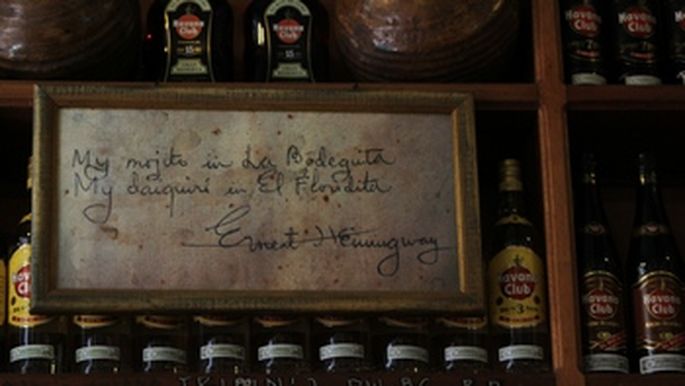 Havana Club
15
Havana Club
15
Havana Club
7
Havana Club
7
Havana Club
My mojito in La Bodeguita
My daiquiri in El Floridita
Ernest Hemingway
Havana Club
Havana Club
3
Havana Club
Havana Club